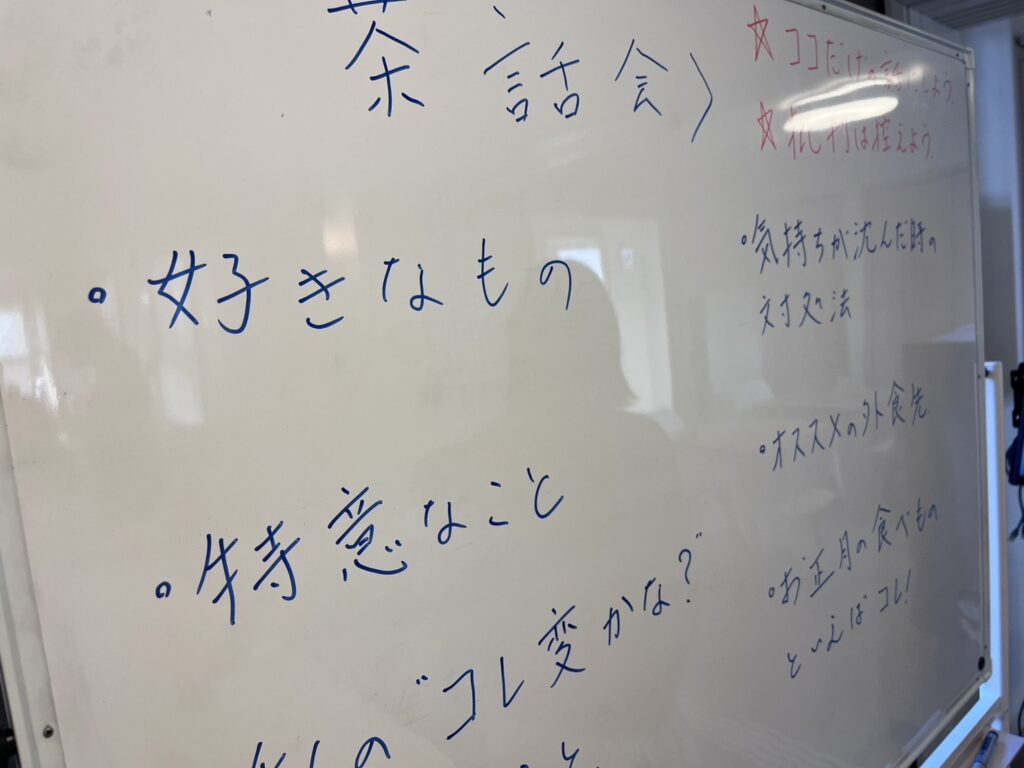 茶話会〉
☆ココだけの話にしよう。
☆批判は控えよう。
・好きなもの
・特意なこと
"コレ変かな?"
私の
・気持ちが沈んだ時の
対処法
・オススメの外食先
・お正月の食べもの
といえばコレ!